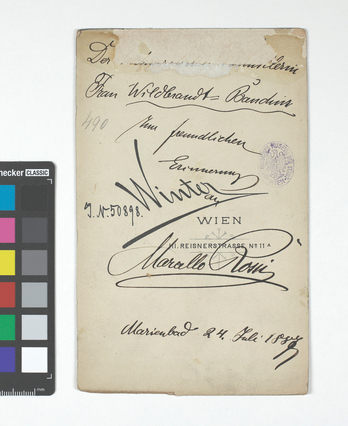 Frau Wildbrandt=Baudius
490
zur freundlichen
Erinnerung
an
Winter
J. N. 50898.
WIEN
III. REISNERSTRASSE Nº 11ᴬ
Marcello Rossi
Marienbad 24. Juli 188
checker CLASSIC
mm